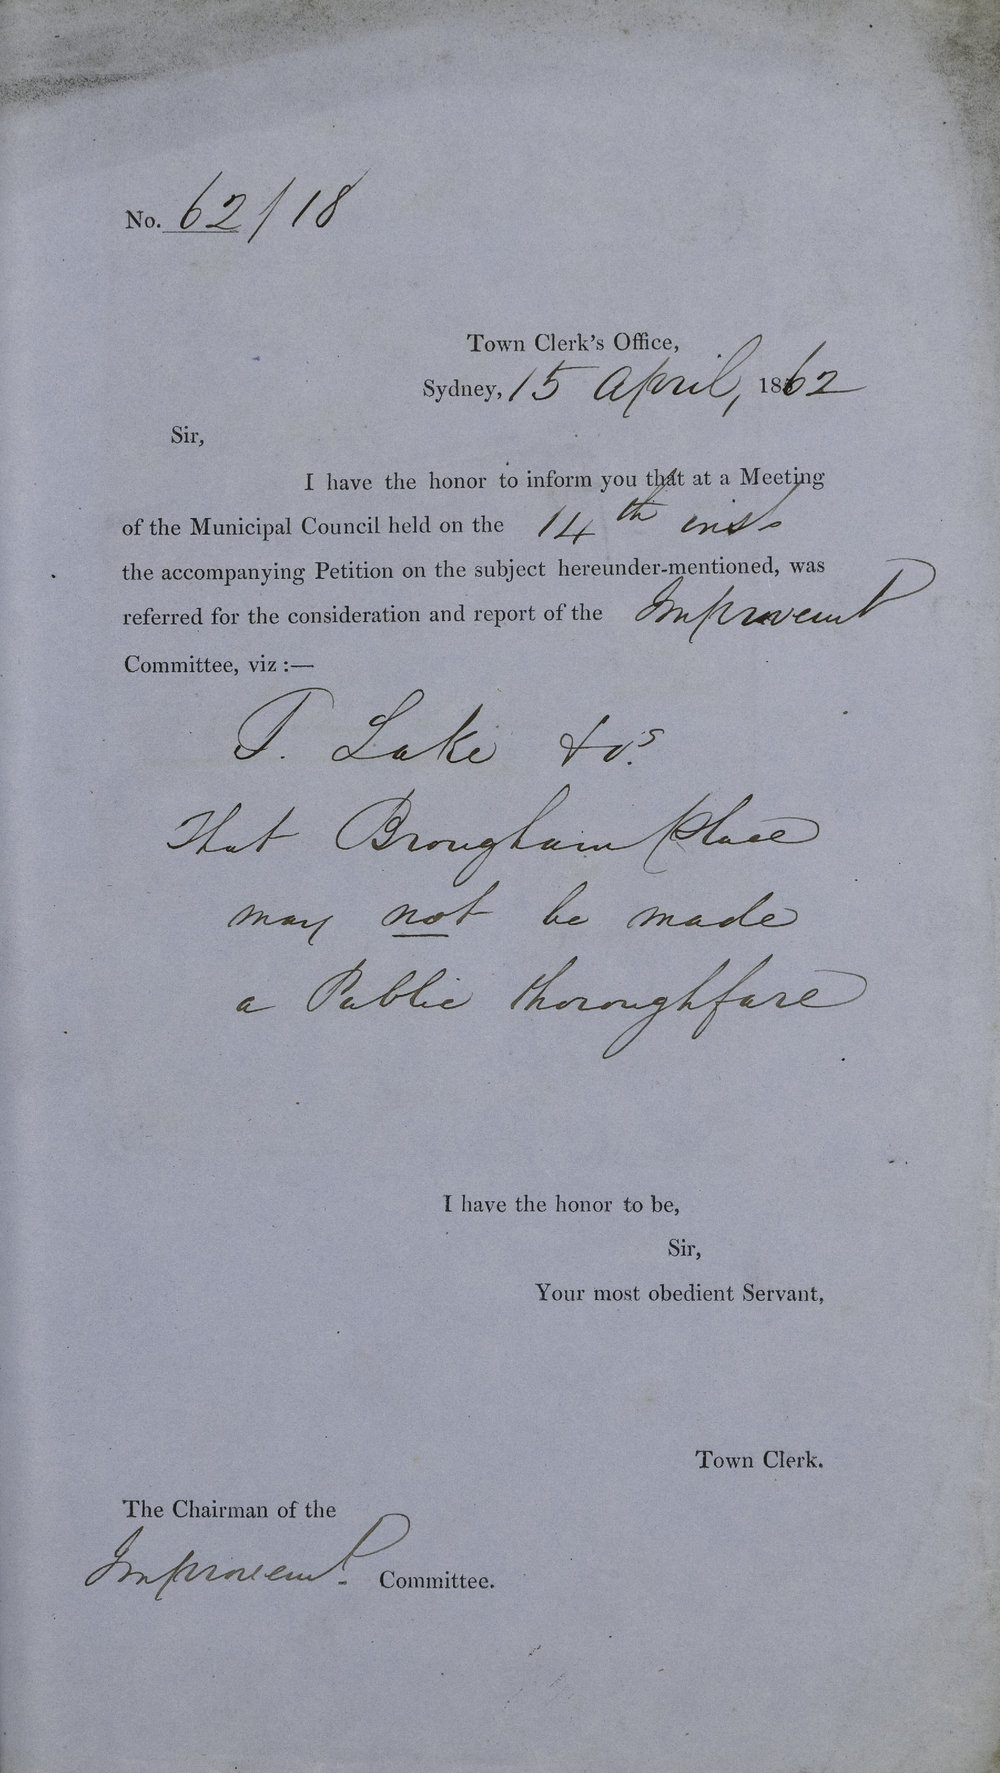 No. 62/18
Town Clerk's Office,
Sydney, 15 April, 1862
Sir,
I have the honor to inform you that at a Meeting
of the Municipal Council held on the 14th inst
the accompanying Petition on the subject hereunder-mentioned, was
referred for the consideration and report of the Improvemt
Committee, viz :—
T. Lake & ors
That Brougham Place
may not be made
a Public thoroughfare
I have the honor to be,
Sir,
Your most obedient Servant,
Town Clerk.
The Chairman of the
Improvemt. Committee.